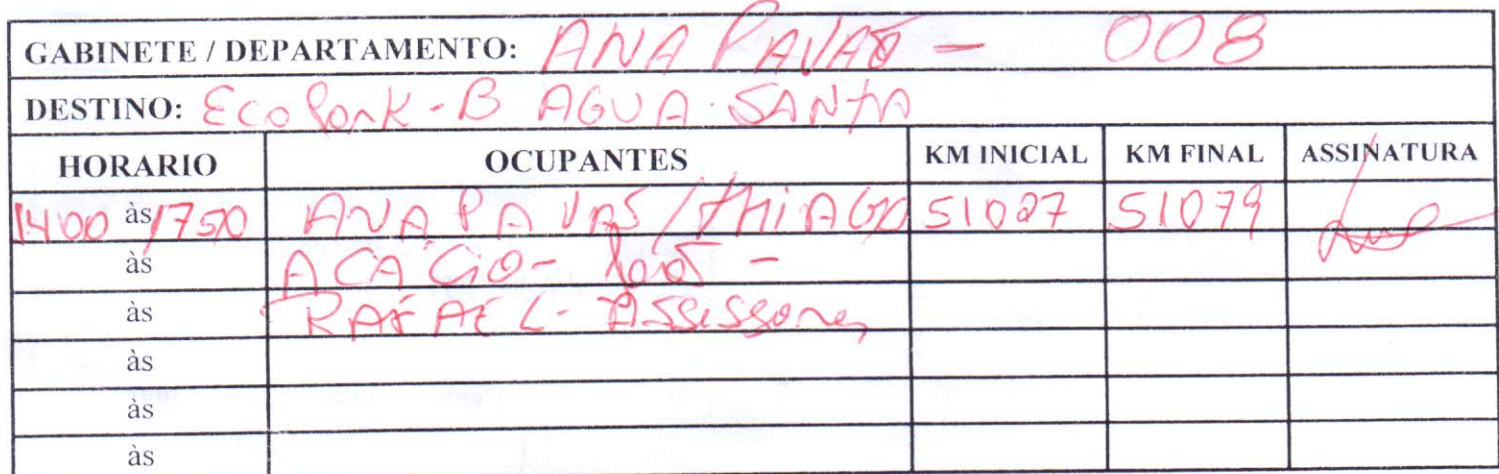 GABINETE / DEPARTAMENTO: ANA PAVAÕ - 008
DESTINO: EcoPark - B AGUA. SANTA
HORARIO OCUPANTES KM INICIAL KM FINAL ASSINATURA
1400 às 1750 ANA PAVAS / THIAGO 51027 51079
às ACACIO - João -
às RAFAEL - Assessores
às
às
às